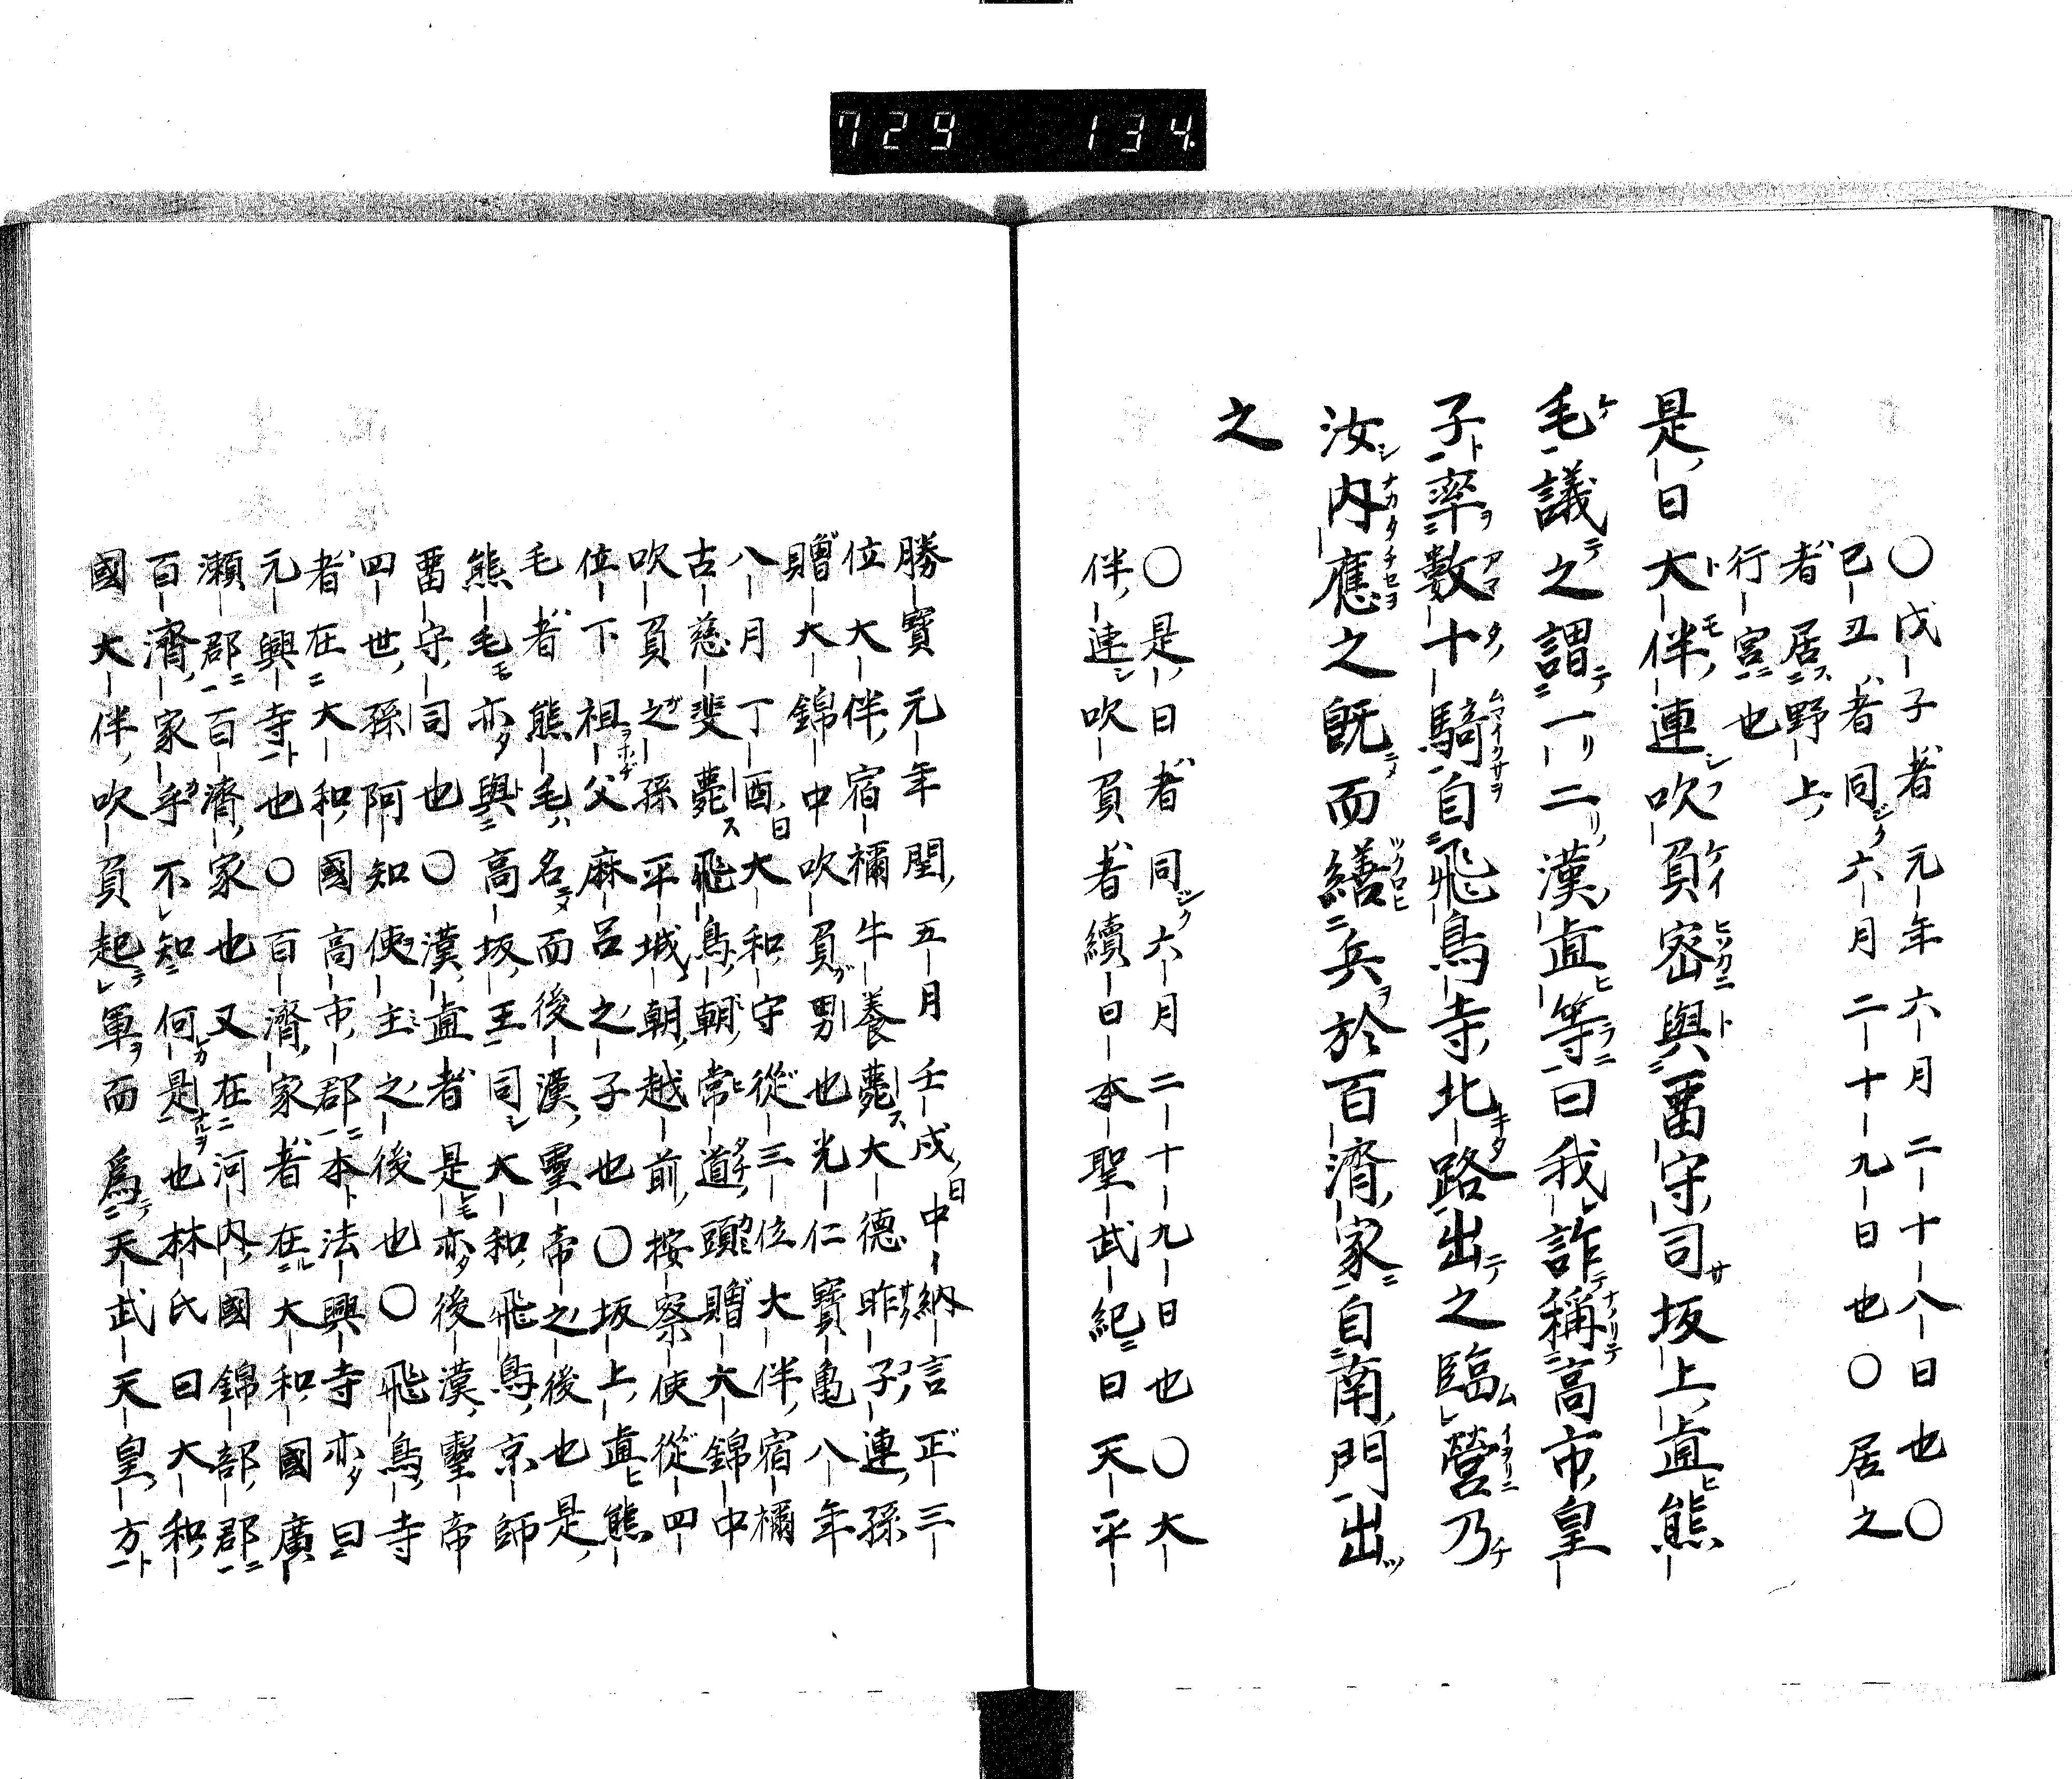 729 134
〇戊子者元年六月二十八日也〇
己丑者同六月二十九日也〇居之
者居野上
行宮也
是日大伴連吹負密與畱守司坂上直熊
毛議之謂一二漢直等曰我詐稱高市皇
子率數十騎自飛鳥寺北路出之臨營乃
汝内應之既而繕兵於百濟家自南門出
之
〇是日者同六月二十九日也〇大
伴連吹負者續日本聖武紀曰天平
勝寶元年閏五月壬戌日中納言正三
位大伴宿禰牛養薨大德昨子連孫
贈大錦中吹負男也光仁寶亀八年
八月丁酉日大和守從三位大伴宿禰
古慈斐薨飛鳥朝常道頭贈大錦中
吹負之孫平城朝越前按察使從四
位下祖父麻呂之子也〇坂上直熊
毛者熊毛名而後漢靈帝之後也是
熊毛亦與高坂王司大和飛鳥京師
畱守司也〇漢直者是亦後漢靈帝
四世孫阿知使主之後也〇飛鳥寺
者在大和國高市郡本法興寺亦曰
元興寺也〇百濟家者在大和國廣
瀬郡百濟家也又在河内國錦部郡
百濟家乎不知何是也林氏曰大和
國大伴吹負起軍而爲天武天皇方